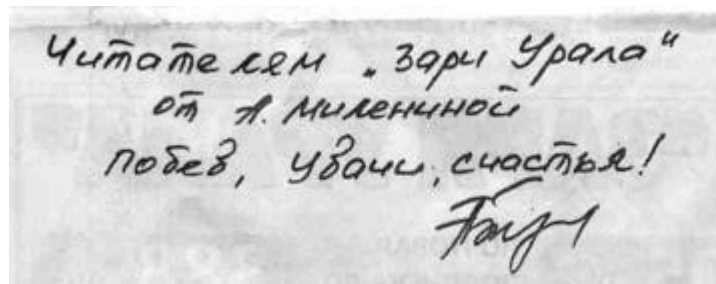 Читателям „Зари Урала“
от А. Милениной
побед, удачи, счастья!